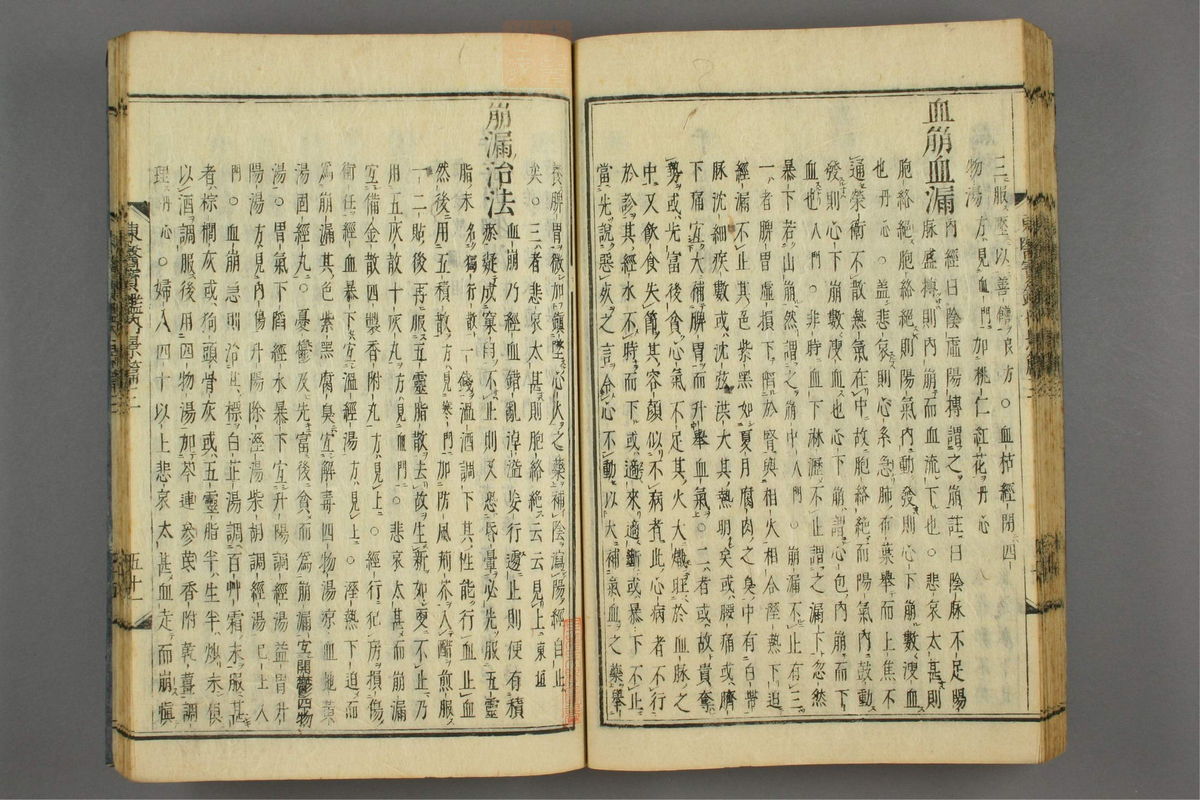 三服壓以善饍〇良方〇血枯經閉四
物湯方見血門加桃仁紅花丹心
血崩血漏
內經曰陰虛陽搏謂之崩註曰陰脉不足陽
脉盛搏則內崩而血流下也〇悲哀太甚則
胞絡絶胞絡絶則陽氣內動發則心下崩數溲血
也丹心〇盖悲哀則心系急肺布葉擧而上焦不
通榮衛不散熱氣在中故胞絡絶而陽氣內鼓動
發則心下崩數溲血也心下崩謂心包內崩而下
血也入門〇非時血下淋瀝不止謂之漏下忽然
暴下若山崩然謂之崩中入門〇崩漏不止有三
一者脾胃虛損下䧟於腎與相火相合濕熱下迫
經漏不止其色紫黑如夏月腐肉之臭中有白帶
脉沈細疾數或沈弦洪大其熱明矣或腰痛或臍
下痛宜大補脾胃而升擧血氣〇二者或故貴奪
勢或先富後貧心氣不足其火大熾旺於血脉之
中又飮食失節其容顔似不病者此心病者不行
於診其經水不時而下或適來適斷或暴下不止
當先說惡死之言令心不動以大補氣血之藥擧
養脾胃微加鎭墜心火之藥補陰瀉陽經自止
矣〇三者悲哀太甚則胞絡絶云云見上東垣
崩漏治法
血崩乃經血錯亂淖溢妄行遽止則便有積
瘀凝成窠臼不止則又恐昏暈必先服五靈
脂末名獨行散一錢溫酒調下其性能行血止血
然後用五積散方見寒門加防風荊芥入醋煎服
一二貼後再服五靈脂散去故生新如更不止乃
用五灰散十灰丸方見血門〇悲哀太甚而崩漏
宜備金散四製香附丸方見上〇經行犯房損傷
衛任經血暴下宜溫經湯方見上〇濕熱下迫而
爲崩漏其色紫黑腐臭宜解毒四物湯凉血地黃
湯固經丸〇憂鬱及先富後貧而爲崩漏宜開鬱四物
湯〇胃氣下䧟經水暴下宜升陽調經湯益胃升
陽湯方見內傷升陽除濕湯柴胡調經湯已上入
門〇血崩急則治標白芷湯調百艸霜末服甚
者棕櫚灰或狗頭骨灰或五靈脂半生半炒末頓
以酒調服後用四物湯加芩連參芪香附乾薑調
理丹心〇婦人四十以上悲哀太甚血走而崩愼
東醫寶鑑內景篇三
五十一